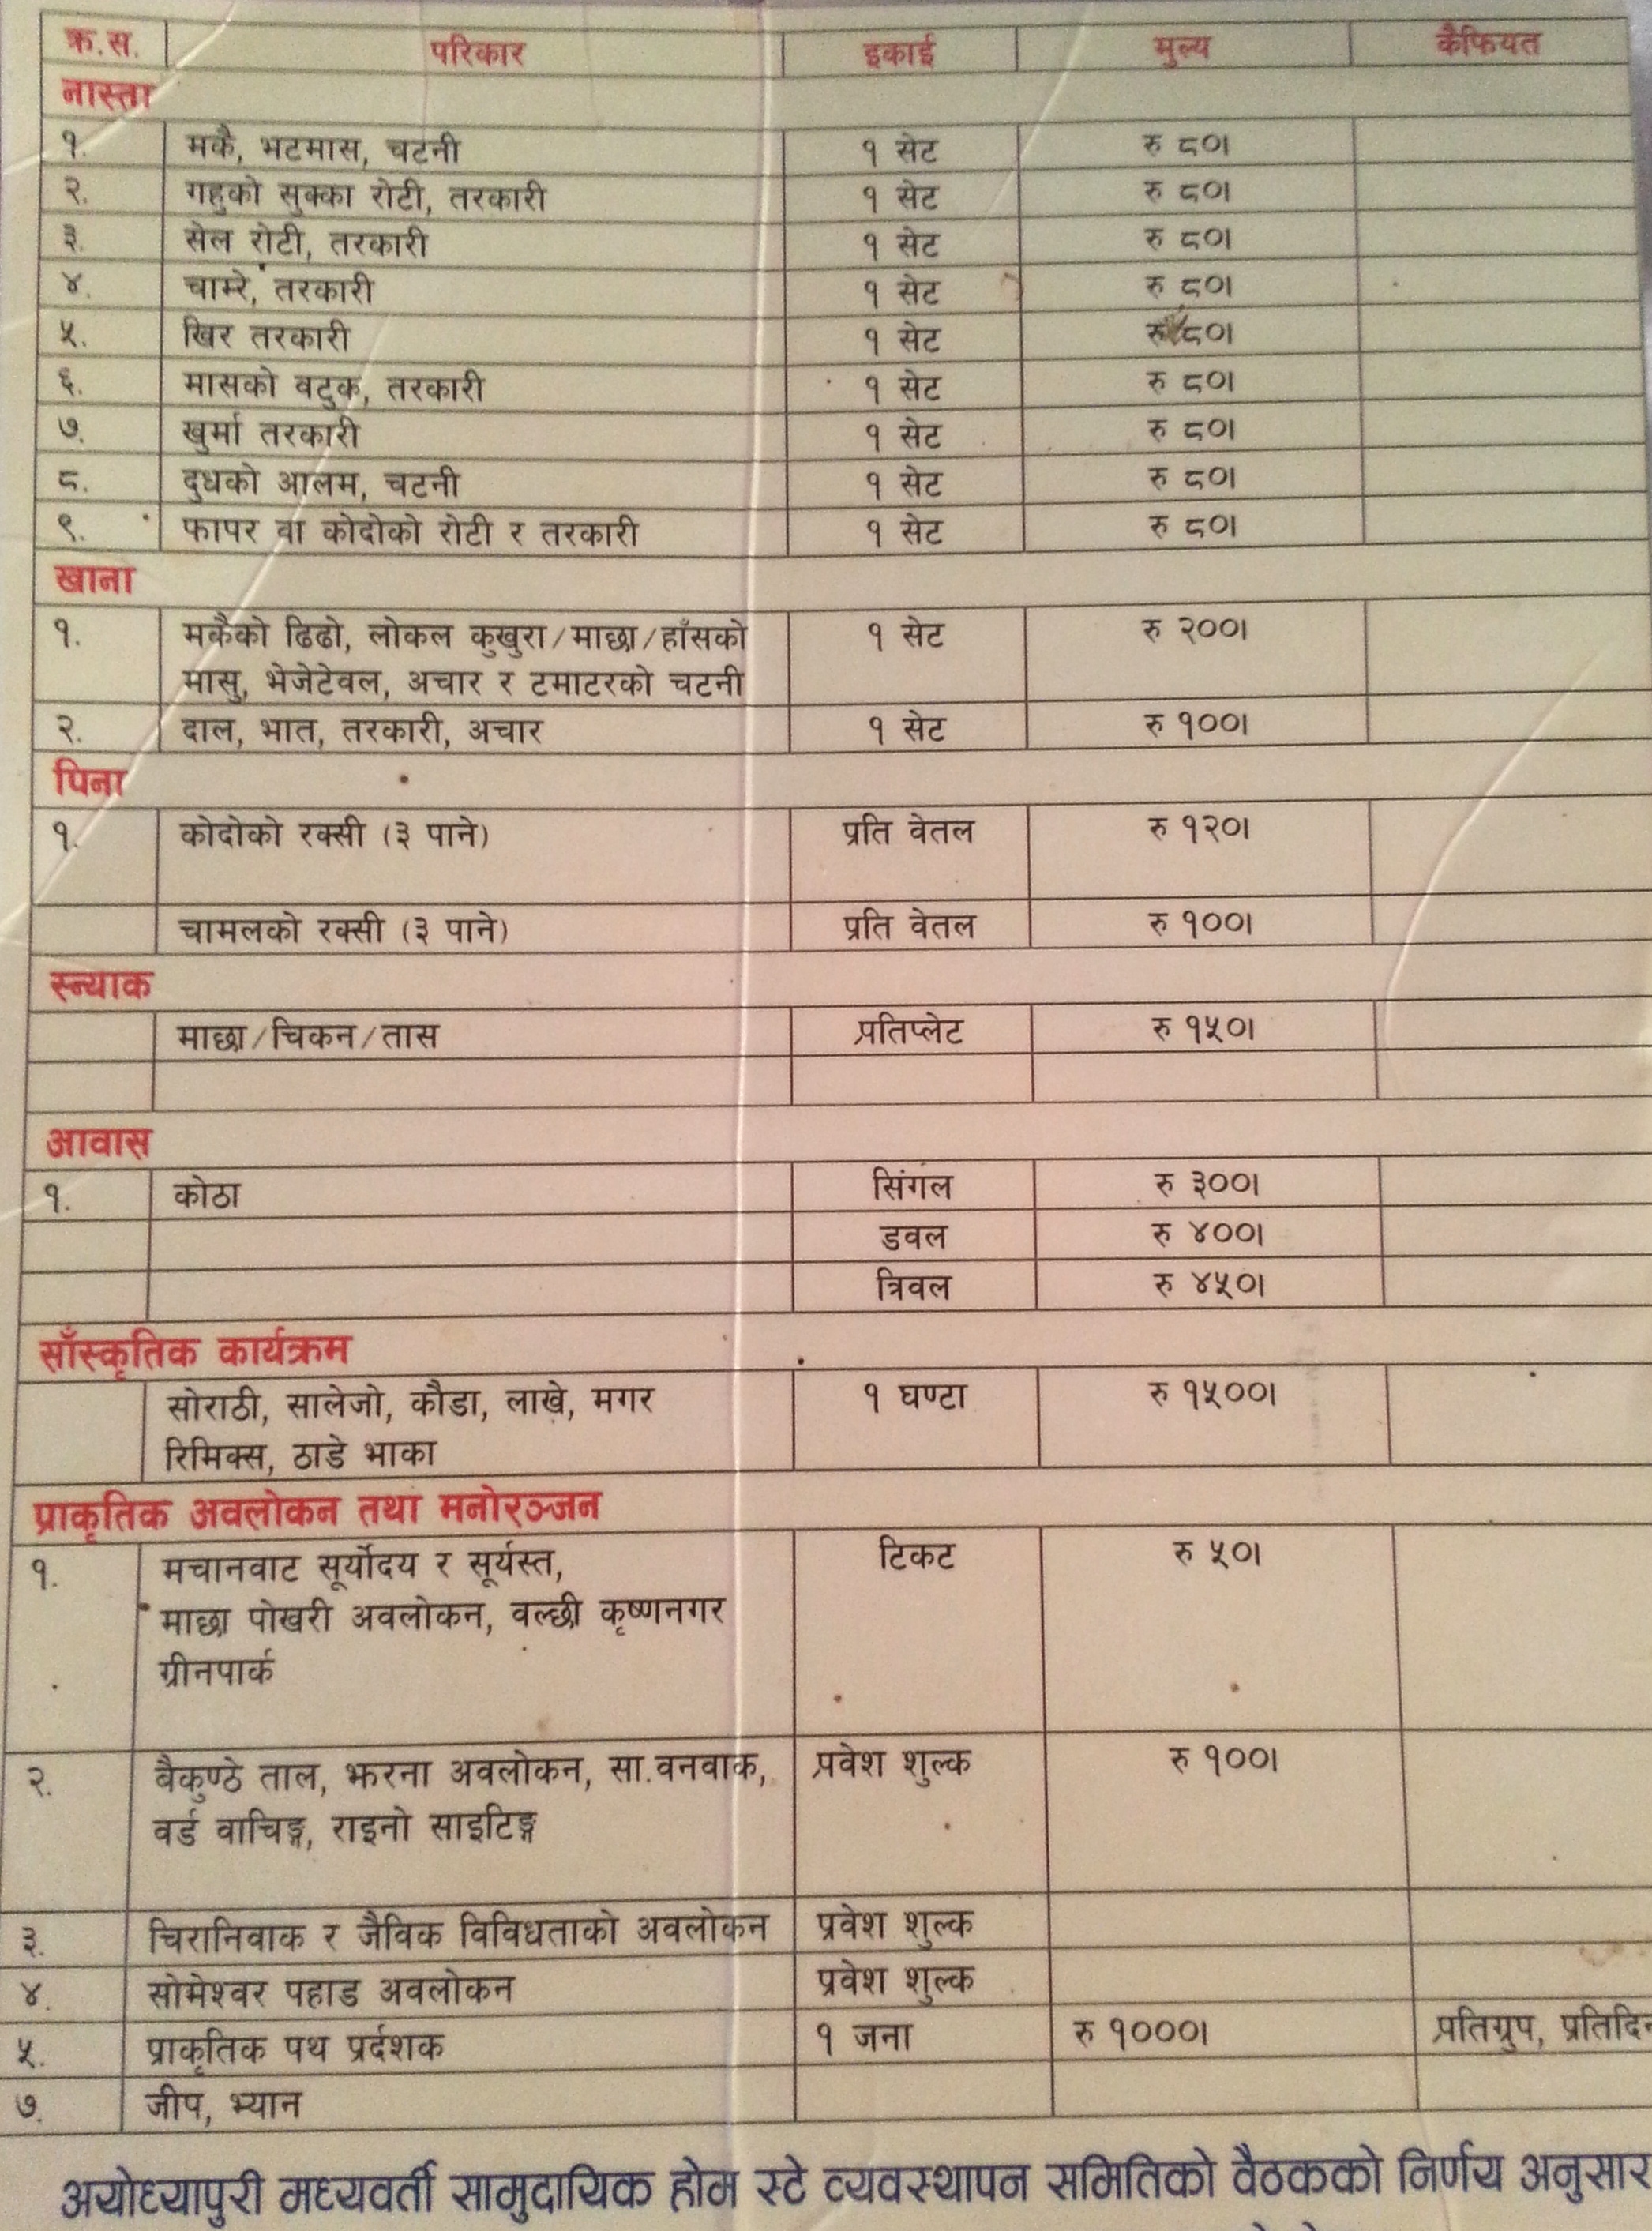 क्र.स. परिकार इकाई मुल्य कैफियत
नास्ता
१. मकै, भटमास, चटनी १ सेट रु ८०।
२. गहुको सुक्का रोटी, तरकारी १ सेट रु ८०।
३. सेल रोटी, तरकारी १ सेट रु ८०।
४. चाम्रे, तरकारी १ सेट रु ८०।
५. खिर तरकारी १ सेट रु ८०।
६. मासको वटुक, तरकारी १ सेट रु ८०।
७. खुर्मा तरकारी १ सेट रु ८०।
८. दुधको आलम, चटनी १ सेट रु ८०।
९. फापर वा कोदोको रोटी र तरकारी १ सेट रु ८०।
खाना
१. मकैको ढिढो, लोकल कुखुरा/माछा/हाँसको १ सेट रु २००।
मासु, भेजेटेवल, अचार र टमाटरको चटनी
२. दाल, भात, तरकारी, अचार १ सेट रु १००।
पिना
१. कोदोको रक्सी (३ पाने) प्रति वेतल रु १२०।
चामलको रक्सी (३ पाने) प्रति वेतल रु १००।
स्न्याक
माछा/चिकन/तास प्रतिप्लेट रु १५०।
आवास
१. कोठा सिंगल रु ३००।
डवल रु ४००।
त्रिवल रु ४५०।
साँस्कृतिक कार्यक्रम
सोराठी, सालेजो, कौडा, लाखे, मगर १ घण्टा रु १५००।
रिमिक्स, ठाडे भाका
प्राकृतिक अवलोकन तथा मनोरञ्जन
१. मचानवाट सूर्योदय र सूर्यस्त, टिकट रु ५०।
माछा पोखरी अवलोकन, वल्छी कृष्णनगर
ग्रीनपार्क
२. बैकुण्ठे ताल, झरना अवलोकन, सा.वनवाक, प्रवेश शुल्क रु १००।
वर्ड वाचिङ्ग, राइनो साइटिङ्ग
३. चिरानिवाक र जैविक विविधताको अवलोकन प्रवेश शुल्क
४. सोमेश्वर पहाड अवलोकन प्रवेश शुल्क
५. प्राकृतिक पथ प्रर्दशक १ जना रु १०००। प्रतिग्रुप, प्रतिदिन
७. जीप, भ्यान
अयोध्यापुरी मध्यवर्ती सामुदायिक होम स्टे व्यवस्थापन समितिको वैठकको निर्णय अनुसार